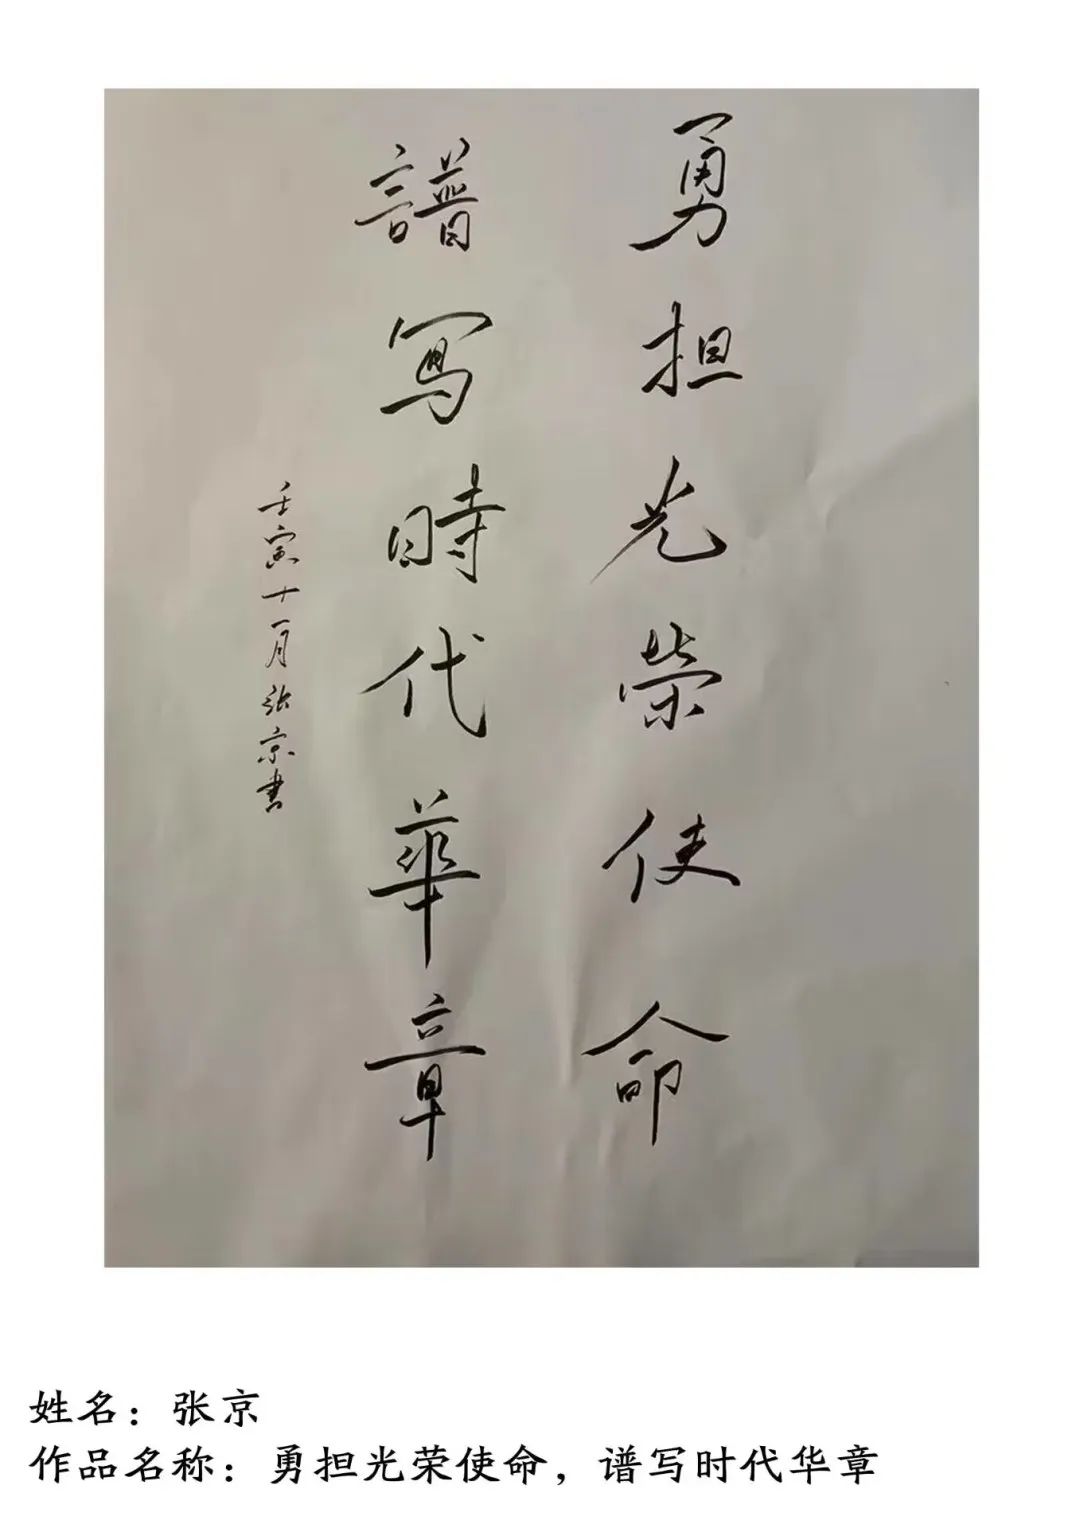 勇担光荣使命
譜写時代華章
壬寅十一月张京書
姓名：张京
作品名称：勇担光荣使命，谱写时代华章